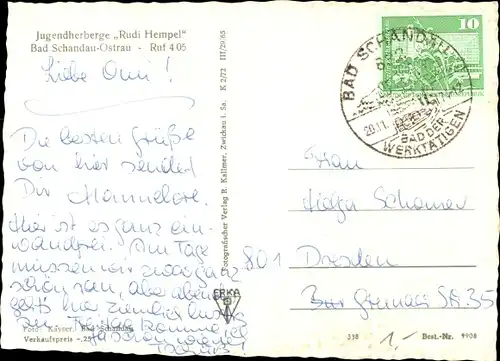 Jugendherberge „Rudi Hempel"
Bad Schandau-Ostrau - Ruf 4 05
Liebe Omi!
Die besten Grüße
von hier sendet
Dir Hannelore.
Hier ist es ganz ein-
wandfrei. Am Tage
müssen wir zwar ganz
schön ran, aber abends
geht's hier ziemlich lustig
Foto: Kayser, Bad Schandau
Verkaufspreis -,25
Fotografischer Verlag R. Kallmer, Zwickau i. Sa. K 2/72 III/29/65
ERKA
10
BAD SCHANDAU
20.11.
BAD DER
WERKTÄTIGEN
Frau
801 Dresden
35
338
1,-
Best.-Nr. 9908